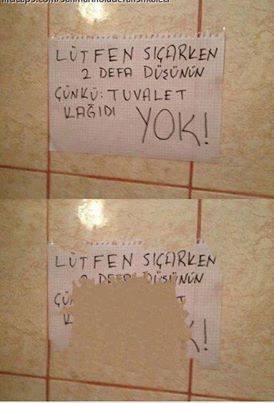 LÜTFEN SIÇARKEN
2 DEFA DÜŞÜNÜN
ÇÜNKÜ: TUVALET
KAĞIDI YOK!
LÜTFEN SIÇARKEN
DÜŞÜNÜN